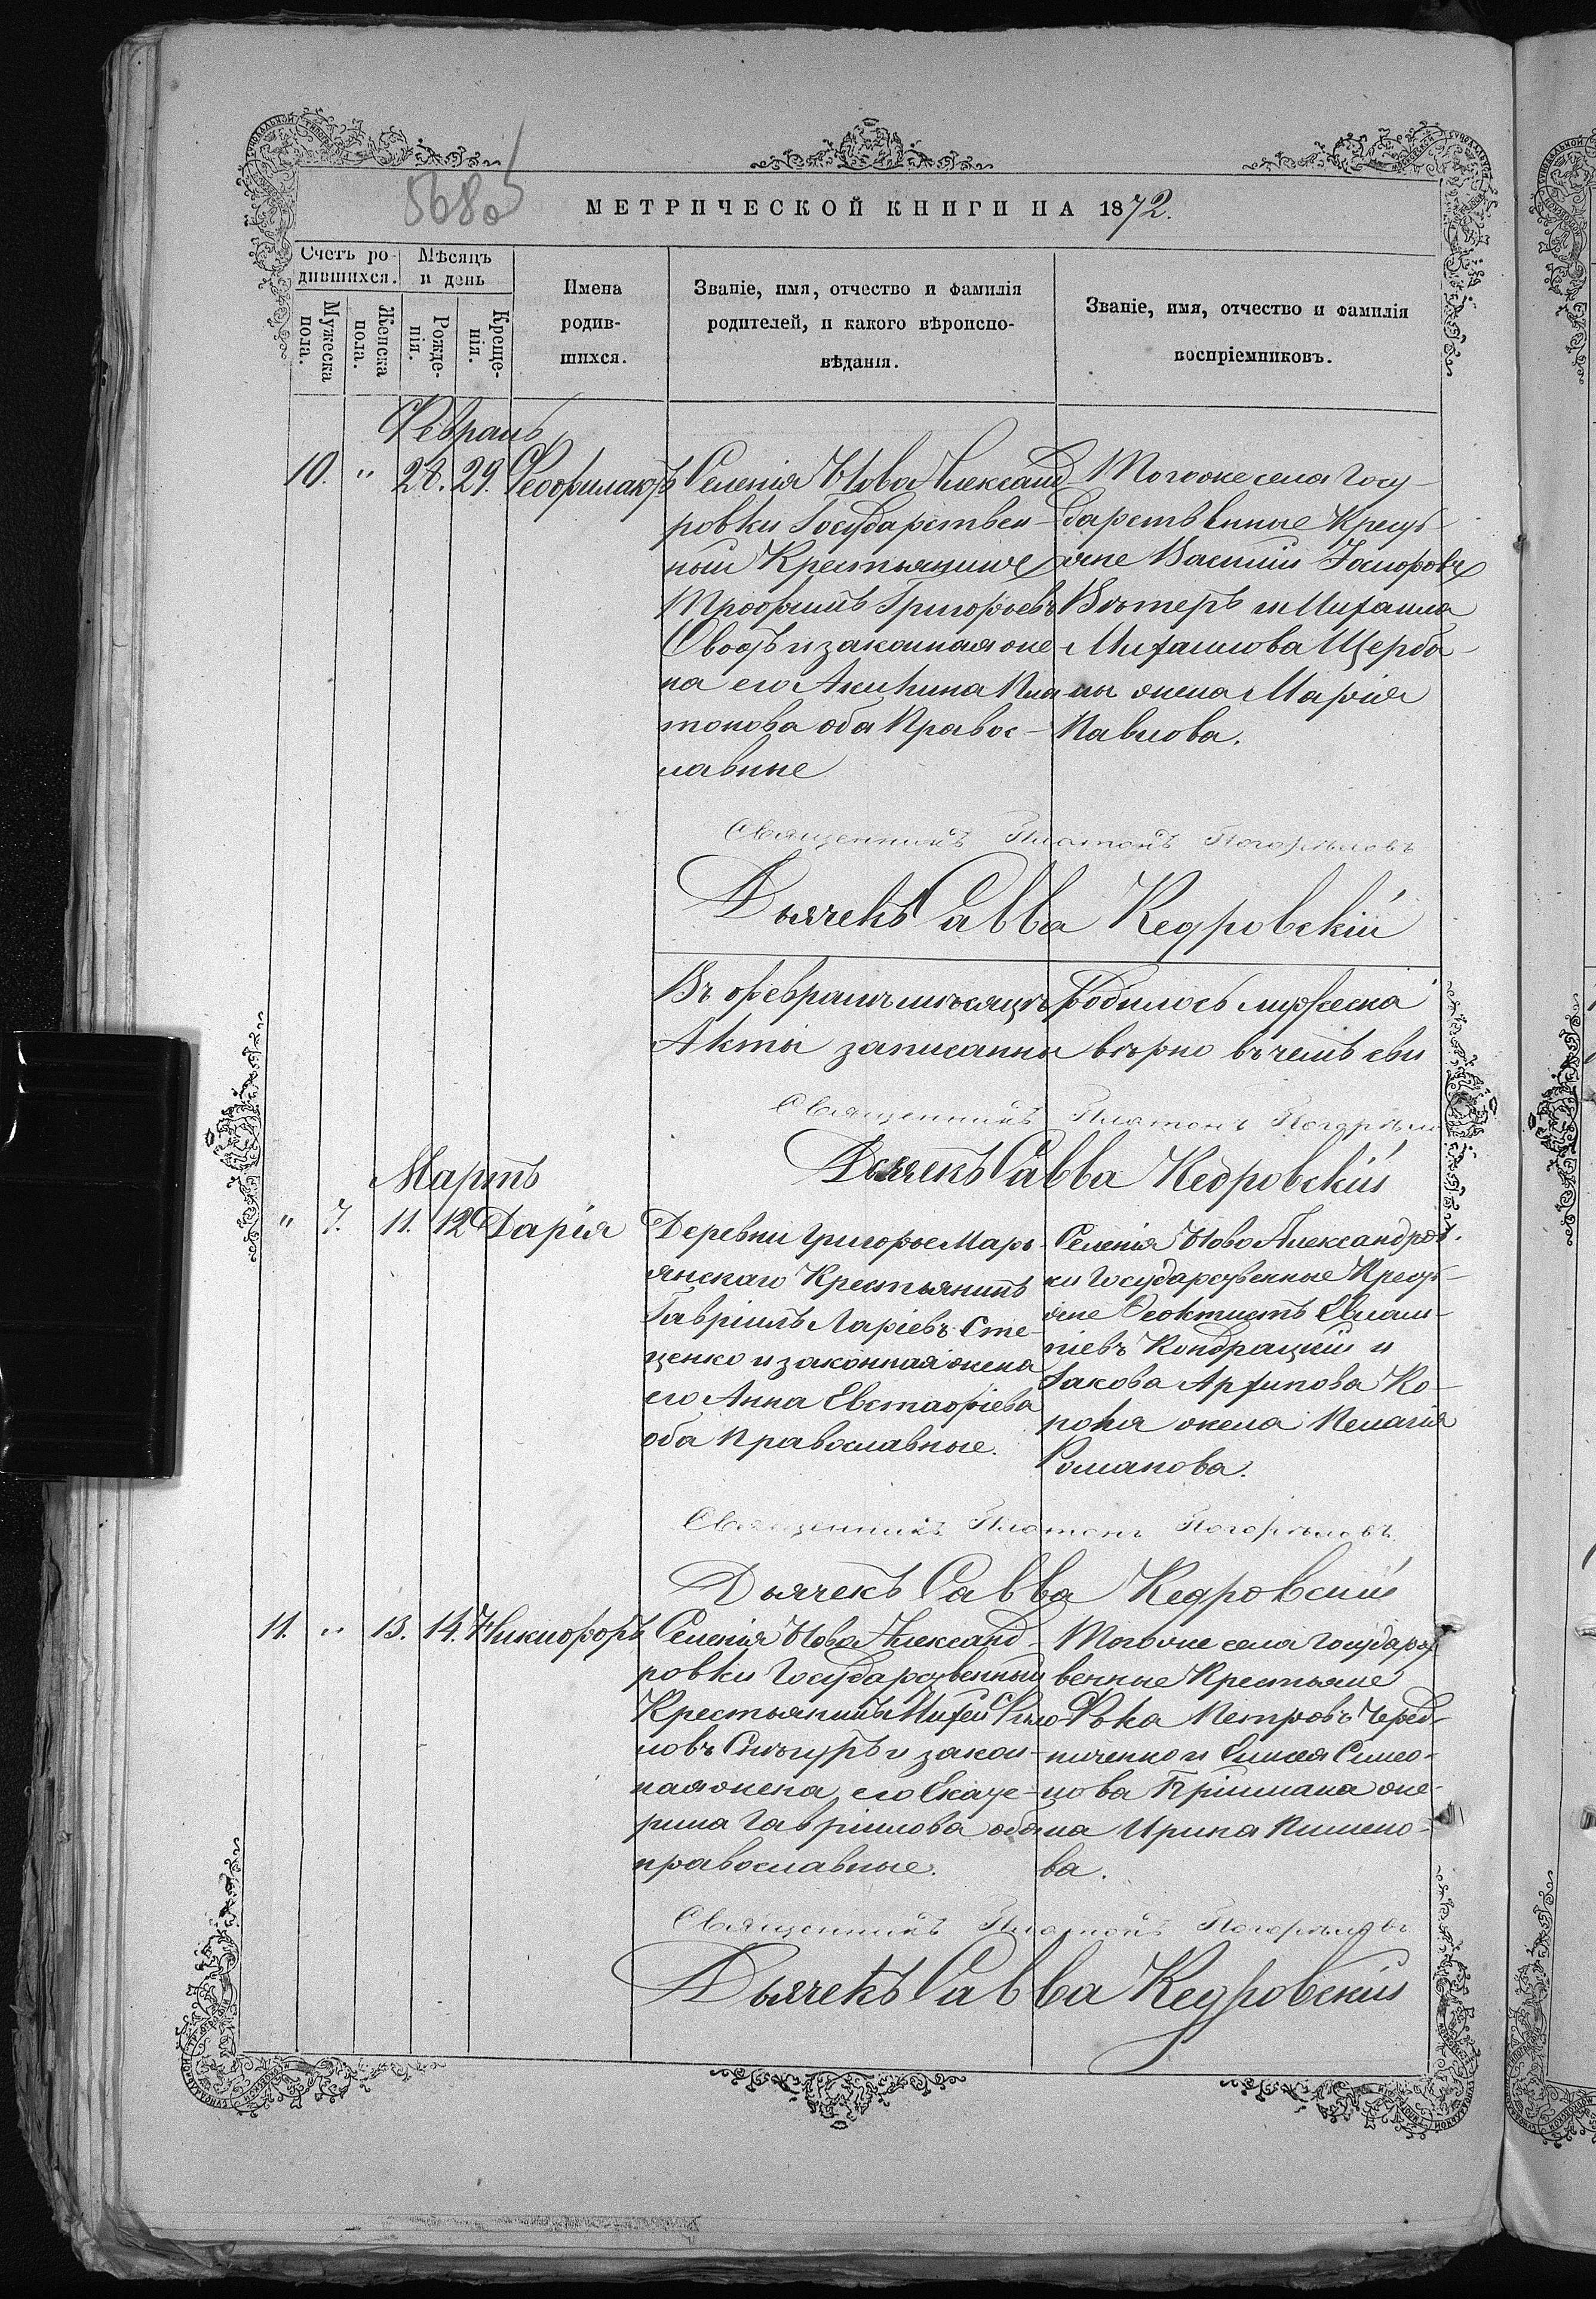 5680
МЕТРИЧЕСКОЙ КНИГИ НА 1872.
Счетъ ро-
дившихся.
Мѣсяцъ
и день
Мужеска
пола.
Женска
пола.
Рожде-
нія.
Креще-
нія.
Имена
родив-
шихся.
Званіе, имя, отчество и фамилія
родителей, и какого вѣроиспо-
вѣданія.
Званіе, имя, отчество и фамилія
воспріемниковъ.
Февраль
10. " 28. 29. Феофилактъ
Селенія Ново Александ
ровки Государствен-
ный Крестьянинъ
Трофимъ Григорьевъ
и законная же
на его Пла
тонова оба Правос-
лавные
Того же села Госу-
дарственные Крест-
яне Василий
и Михаила
Михаилова Щерба-
жена Марія
Павлова.
Священникъ Платонъ Погорѣловъ
Дьячекъ Савва Кедровскій
Въ февралѣ мѣсяцѣ родилось мужеска
Акты записанны вѣрно въ чемъ сви
Священникъ Платонъ Погорѣло
Дьячекъ Савва Кедровскій
Мартъ
" 7. 11. 12 Дарія
Деревни Григорье Марь
янскаго Крестьянинъ
Гавріилъ Ларіевъ Сте-
ценко и законная жена
его Анна Евстафіева
оба Православные.
Селенія Ново Александров.
ки Государственные Крест-
яне Феоктистъ
Кондрацкій и
Іакова Архипова Ко-
жена Пелагія
Романова.
Священникъ Платонъ Погорѣловъ
Дьячекъ Савва Кедровскій
11. " 13. 14. Никифоръ
Селенія Ново Александ-
ровки Государственный
Крестьянинъ Михей Фило
новъ Снѣгуръ и закон-
ная жена его Екате-
рина Гавріилова оба
православные.
Того же села Государст
венные Крестьяне
Петровъ Черед-
ниченко и Елисея Симо-
нова же-
на Ирина Пимено-
ва.
Священникъ Платонъ Погорѣловъ
Дьячекъ Савва Кедровскій